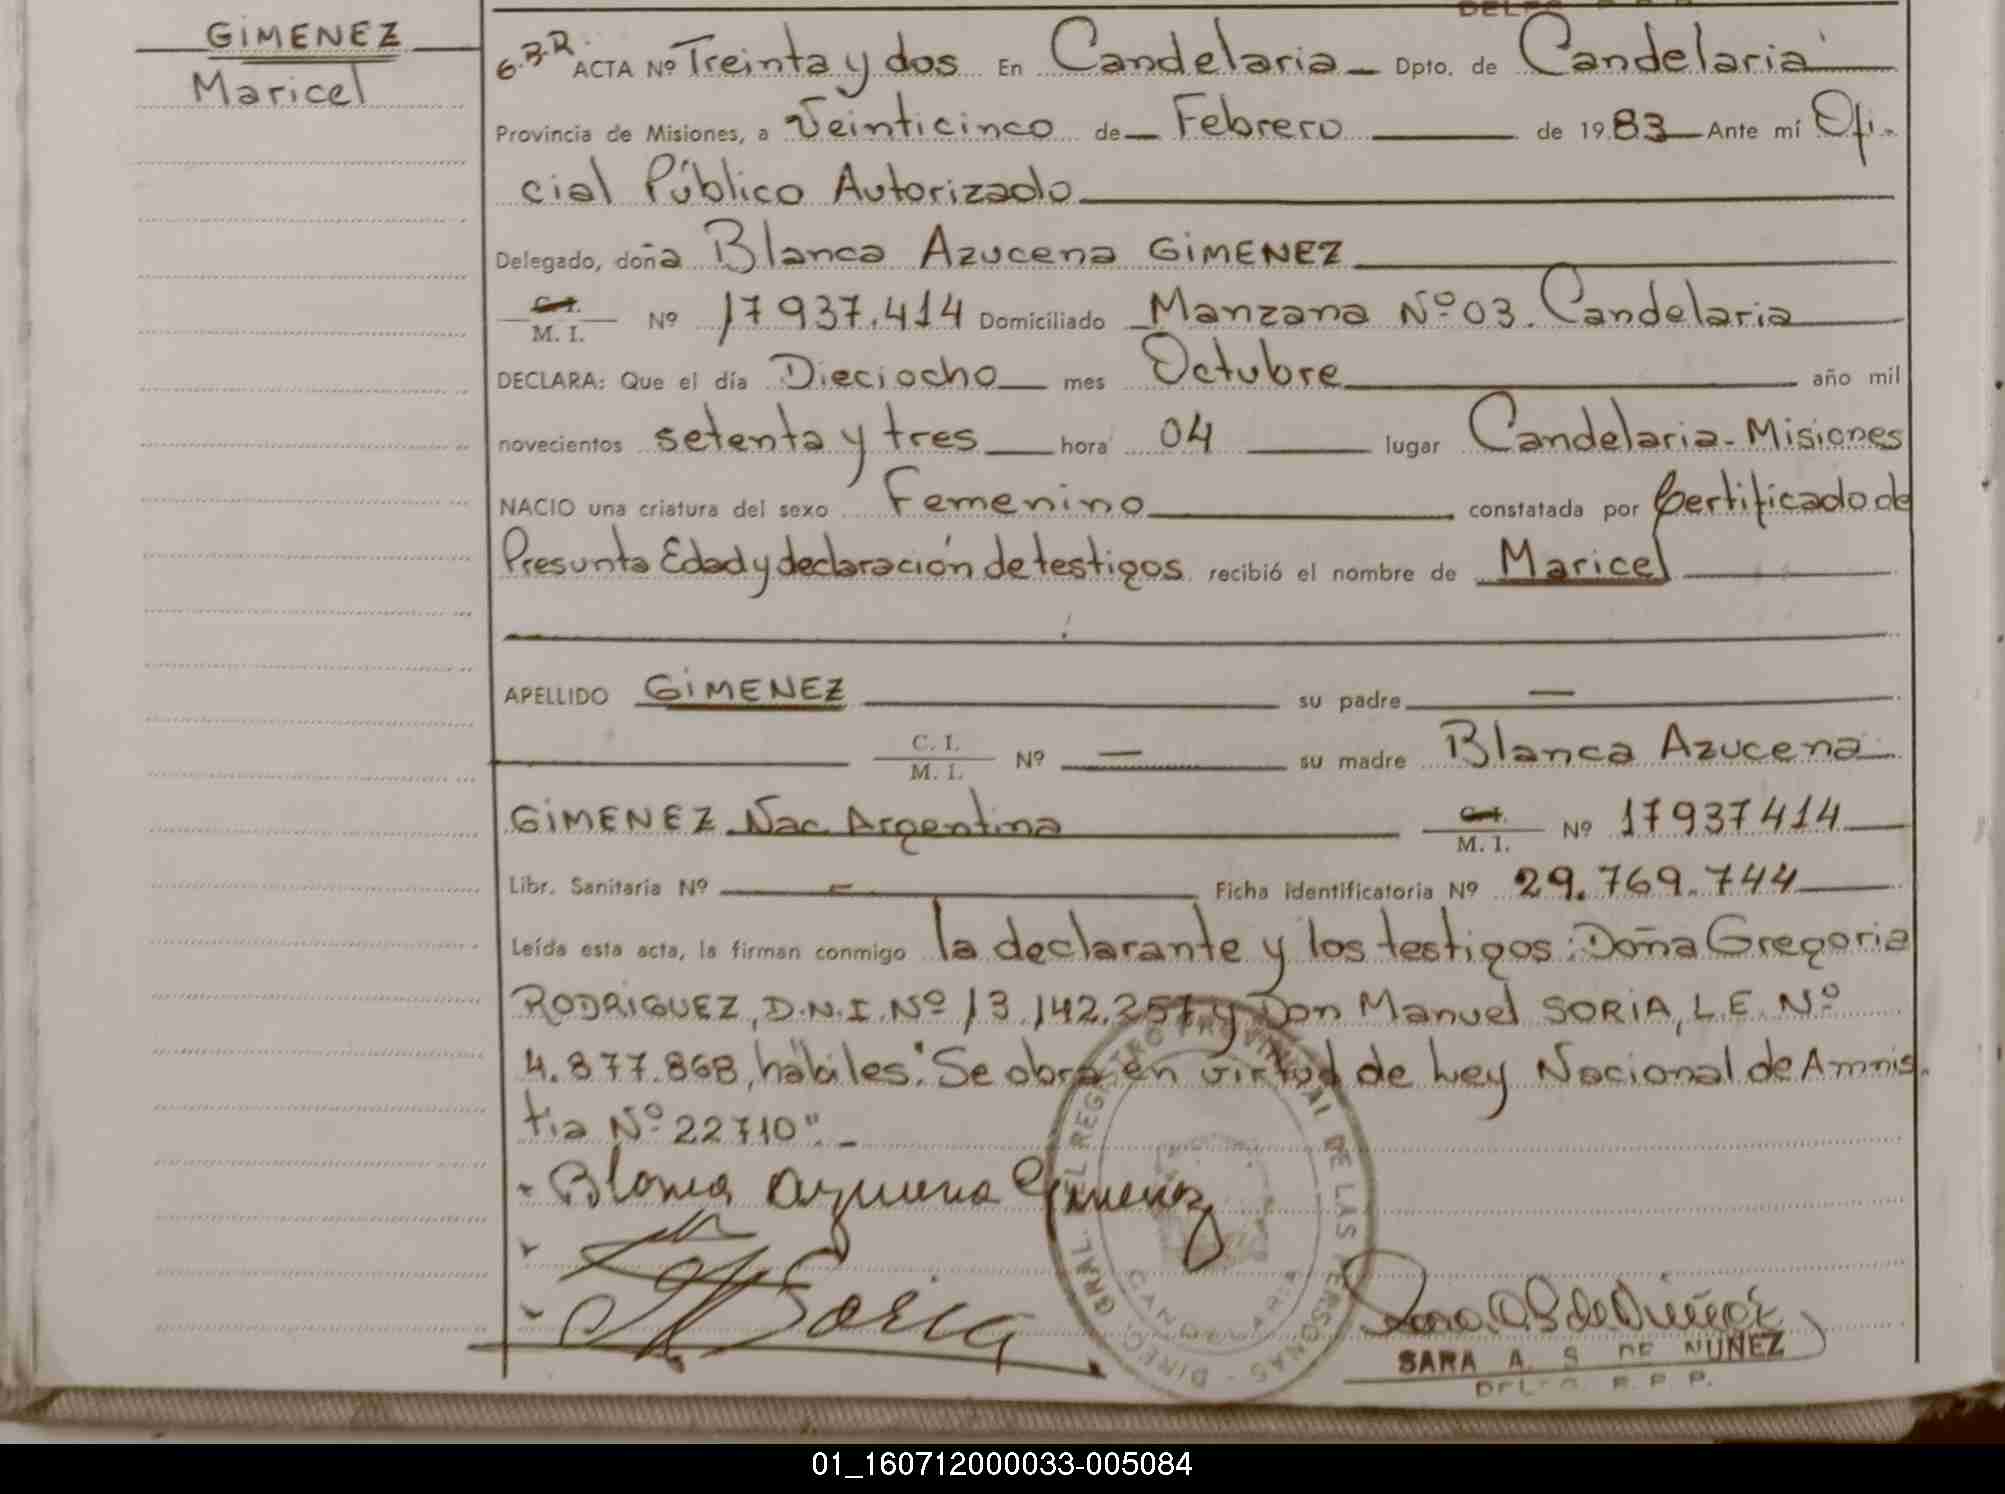 GIMENEZ
Maricel
DELEG. R.P.P.
6.3.R. ACTA Nº Treinta y dos En Candelaria Dpto. de Candelaria
Provincia de Misiones, a Veinticinco de Febrero de 1983 Ante mí Ofi-
cial Público Autorizado
Delegado, doña Blanca Azucena GIMENEZ
C.I.
M. I. Nº 17937.414 Domiciliado Manzana Nº 03. Candelaria
DECLARA: Que el día Dieciocho mes Octubre año mil
novecientos setenta y tres hora 04 lugar Candelaria - Misiones
NACIO una criatura del sexo Femenino constatada por Certificado de
Presunta Edad y declaración de testigos recibió el nombre de Maricel
APELLIDO GIMENEZ su padre —
C. I.
M. I. Nº — su madre Blanca Azucena
GIMENEZ Nac. Argentina C.I.
M. I. Nº 17937414
Libr. Sanitaria Nº — Ficha identificatoria Nº 29.769.744
Leída esta acta, la firman conmigo la declarante y los testigos: Doña Gregoria
RODRIGUEZ, D.N.I. Nº 13.142.257 y Don Manuel SORIA, L.E. Nº
4.877.868, hábiles. "Se obra en virtud de Ley Nacional de Amnis
tia Nº 22710". -
Blanca Azucena Gimenez
Soria
DIREC. GRAL. DEL REGISTRO PROVINCIAL DE LAS PERSONAS -
CANDELARIA
SARA A. S. DE NUÑEZ
DELEG. R. P. P.
01_160712000033-005084